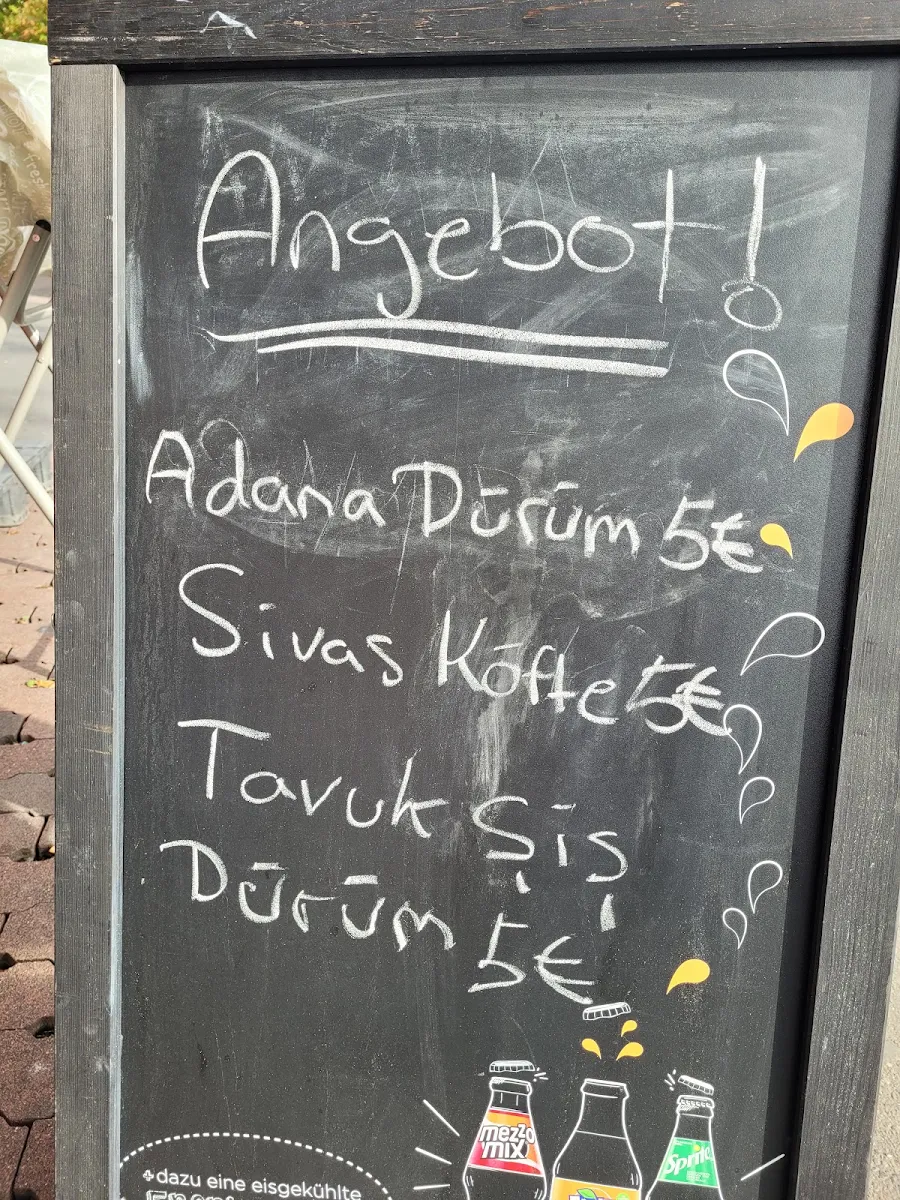 Angebot!
Adana Dürüm 5€
Sivas Köfte 5€
Tavuk Şiş
Dürüm 5€
mezzo
mix
Sprite
+dazu eine eisgekühlte